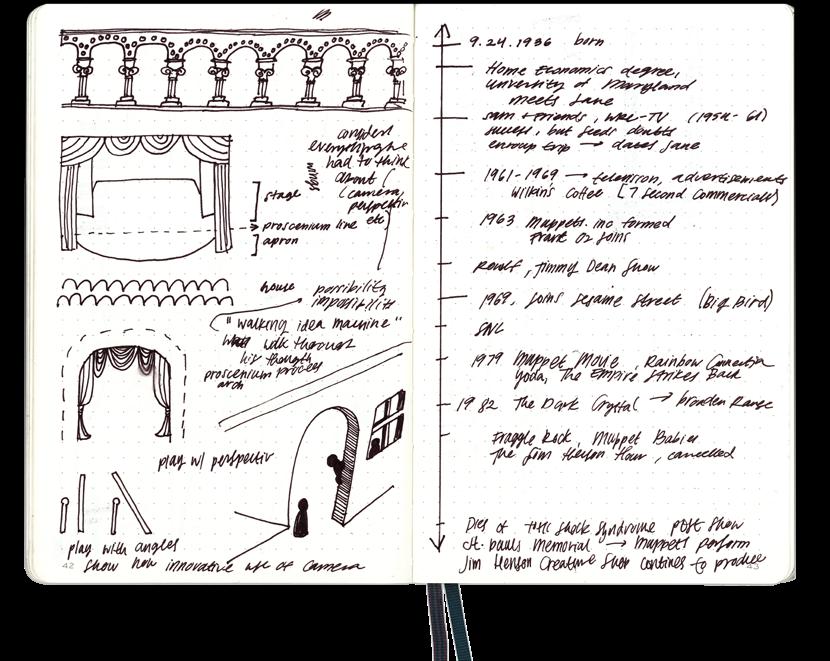 consident
everything he
had to think
about
(camera,
perspectiv
etc)
stage
proscenium line
apron
house
possibility
impossibility
"walking idea machine"
walk through
his thought
process
proscenium
arch
play w/ perspectiv
play with angles
show how innovative use of camera
42
9.24.1936 born
Home Economics degree,
University of Maryland
meets Jane
Sam + friends, WRC-TV (1954-61)
success, but feeds doubts
europ trip → dates Jane
1961-1969 → television, advertisements
Wilkin's Coffee [7 second commercials]
1963 Muppets. inc formed
Frank Oz joins
Rowlf, Jimmy Dean Show
1969, joins Sesame Street (Big Bird)
SNL
1979 Muppet Movie, Rainbow Connection
Yoda, The Empire Strikes Back
1982 The Dark Crystal → broaden Range
Fraggle Rock, Muppet Babies
The Jim Henson Hour, cancelled
Dies of toxic shock syndrome post show
St. Pauls Memorial → Muppets perform
Jim Henson Creature Shop contines to produce
43